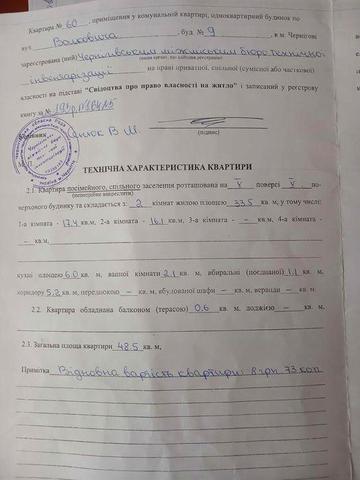 Квартира № 60, приміщення у комунальній квартирі, одноквартирний будинок по
вул. Волковича, буд. № 9, в м. Чернігові
зареєстрований (ний) Чернігівським міжміським бюро технічно-
інвентаризації на праві приватної, спільної (сумісної або часткової)
власності на підставі "Свідоцтва про право власності на житло" і записаний у реєстрову
книгу за №
Керівник В. М
М. П. (підпис)
ТЕХНІЧНА ХАРАКТЕРИСТИКА КВАРТИРИ
2.1. Квартира посімейного, спільного заселення розташована на V поверсі V по-
(непотрібне викреслити)
верхового будинку та складається з: 2 кімнат жилою площею 33.5 кв. м, у тому числі:
1-а кімната - 17.4 кв.м, 2-а кімната - 16.1 кв.м, 3-а кімната - – кв.м, 4-а кімната -
– кв.м,
кухні площею 6.0 кв. м, ванної кімнати 2.1 кв. м, вбиральні (поєднаної) 1.1 кв. м,
коридору 5.2 кв. м, передпокою – кв. м, вбудованої шафи – кв. м, веранди – кв. м.
2.2. Квартира обладнана балконом (терасою) 0.6 кв. м, лоджією – кв. м.
2.3. Загальна площа квартири 48.5 кв. м,
Примітка Відновна вартість квартири: 8 грн 73 коп